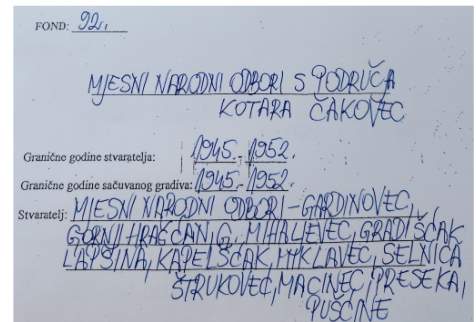 FOND: 92.
MJESNI NARODNI ODBORI S PODRUČA
KOTARA ČAKOVEC
Granične godine stvaratelja: 1945. - 1952.
Granične godine sačuvanog gradiva: 1945. - 1952.
Stvaratelj: MJESNI NARODNI ODBORI - GARDINOVEC,
GORNJI HRAŠĆAN, G. MIHALJEVEC, GRADIŠČAK
LAPŠINA, KAPELŠČAK, MIKLAVEC, SELNICA
ŠTRUKOVEC, MACINEC, PRESEKA,
PUŠĆINE